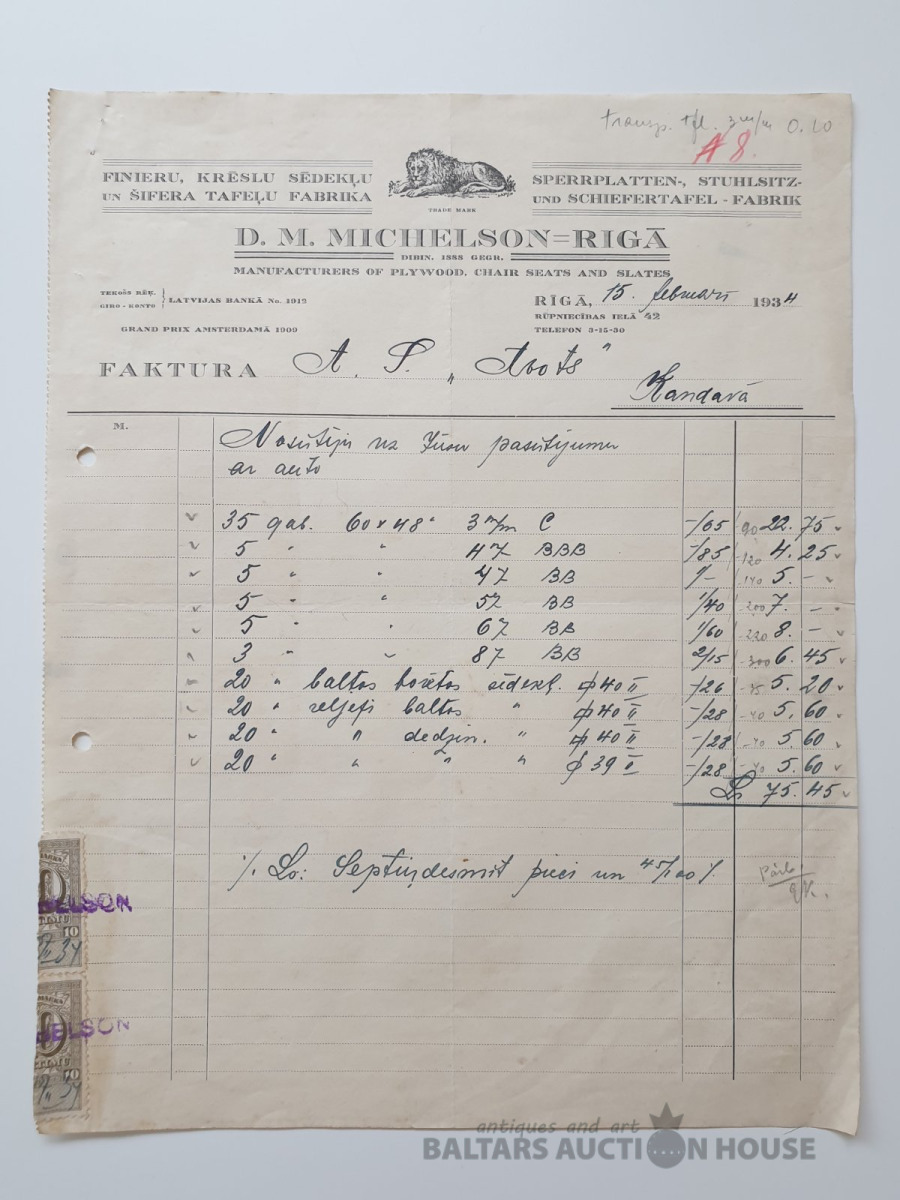 transp. 3 m/m 0.10
A 8.
FINIERU, KRĒSLU SĒDEKĻU
UN ŠIFERA TAFEĻU FABRIKA
TRADE MARK
SPERRPLATTEN-, STUHLSITZ-
UND SCHIEFERTAFEL - FABRIK
D. M. MICHELSON=RIGĀ
DIBIN. 1888 GEGR.
MANUFACTURERS OF PLYWOOD, CHAIR SEATS AND SLATES
TEKOŠS RĒĶ.
GIRO - KONTO
LATVIJAS BANKĀ No. 1912
GRAND PRIX AMSTERDAMĀ 1909
RĪGĀ, 15. februarī 1934
RŪPNIECĪBAS IELĀ 42
TELEFON 3-15-30
FAKTURA A. S. „Avots"
Kandavā
M.
Nosūtīju uz Jūsu pasūtījumu
ar auto
35 gab. 60 x 48" 3 m/m C -/65 90 22. 75
5 " " 4 " BBB -/85 -120 4. 25
5 " " 4 " BB 1/- 140 5. -
5 " " 5 " BB 1/40 -200 7. -
5 " " 6 " BB 1/60 -220 8. -
3 " " 8 " BB 2/15 -300 6. 45
20 " baltos sēdekļ. ø 40 II -/26 5. 20
20 " reljefi baltos " ø 40 II -/28 -40 5. 60
20 " " dedzin. " ø 40 II -/28 -40 5. 60
20 " " " " ø 39 II -/28 -40 5. 60
Ls 75. 45
% Ls: Septiņdesmit pieci un 45/100 %
10
ELSON
10
ELSON
antiques and art
BALTARS AUCTION HOUSE